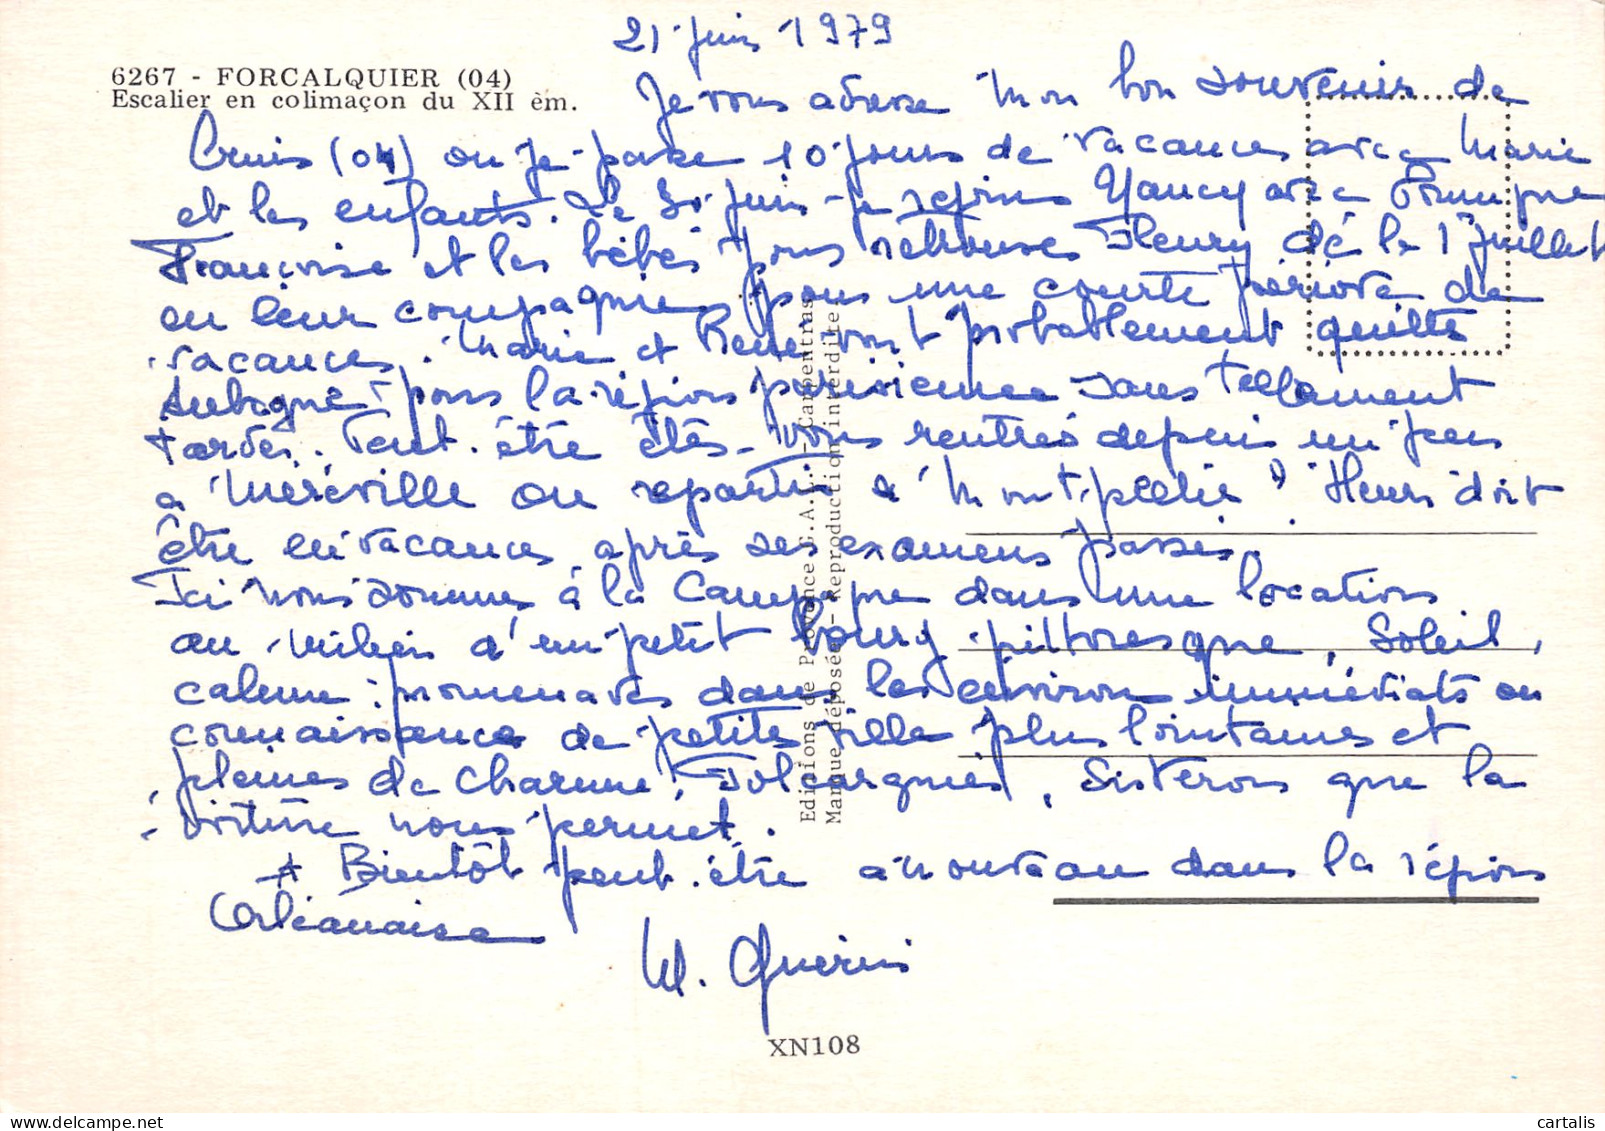 21 juin 1979
6267 - FORCALQUIER (04)
Escalier en colimaçon du XII èm.
Je vous adresse mon bon souvenir de
Cruis (04) ou je passe 10 jours de vacances avec Marie
et les enfants. Le 30 juin je rejoins Nancy avec
Françoise et les bébés pous retrouver Fleury dé le 1er juillet
en leur compagnie pous une courte période de
vacances. Marie et René vont probablement quitter
Aubagne pous la région parisienne sans tellement
tarder. Peut-être êtes-vous rentrés depuis un peu
a Méréville ou repartis a Montpellier ? Henri doit
être en vacances après ses examens passés.
Ici nous sommes à la Campagne dans une location
au milieu d'un petit bourg pittoresque. Soleil,
calme : promenades dans les environs immédiats ou
connaissance de petites ville plus lointaines et
pleines de charme. Folcarquier, Sisteron que la
voiture nous permet.
A Bientôt peut-être a nouveau dans la région
Orléanaise
M. Guerin
Editions de Provence C.A.L. - Carpentras
Marque déposée - Reproduction interdite
XN108
cartalis